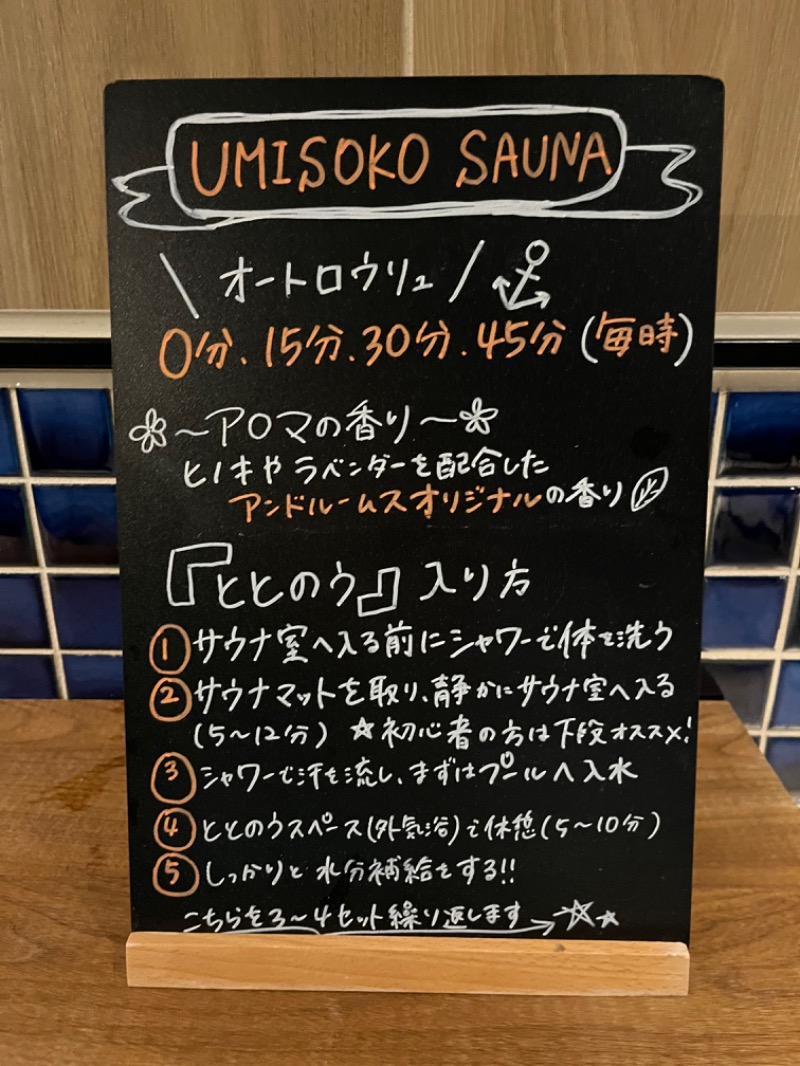 UMISOKO SAUNA
\ オートロウリュ /
0分、15分、30分、45分(毎時)
～アロマの香り～
ヒノキやラベンダーを配合した
アンドルームスオリジナルの香り
『ととのう』入り方
① サウナ室へ入る前にシャワーで体を洗う
② サウナマットを取り、静かにサウナ室へ入る
(5～12分) ☆初心者の方は下段オススメ!
③ シャワーで汗を流し、まずはプールへ入水
④ ととのうスペース(外気浴)で休憩(5～10分)
⑤ しっかりと水分補給をする!!
こちらを3～4セット繰り返します→☆☆